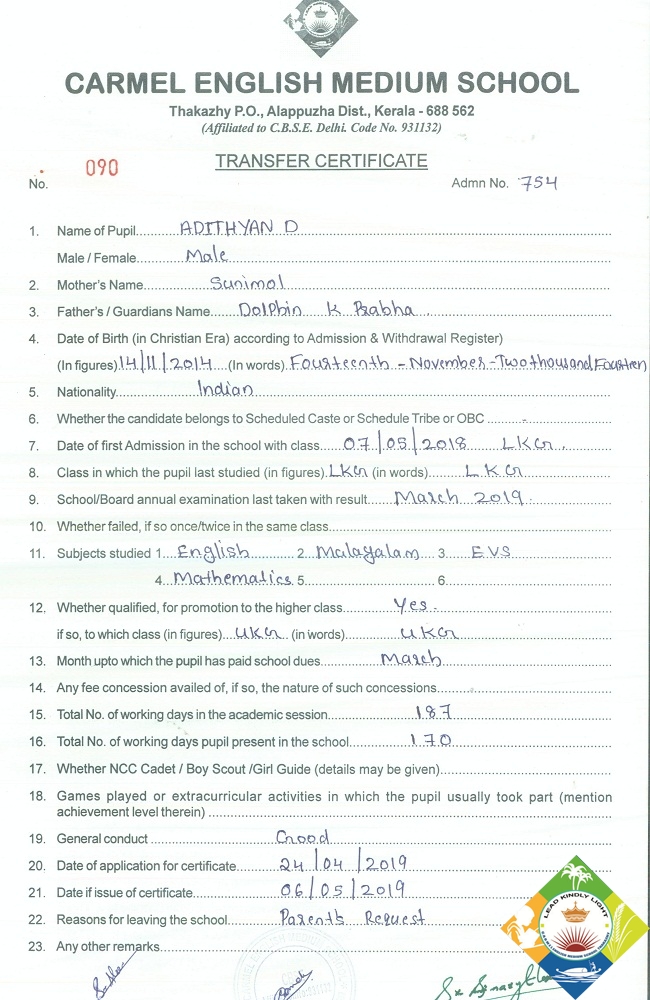 CARMEL ENGLISH MEDIUM SCHOOL
Thakazhy P.O., Alappuzha Dist., Kerala - 688 562
(Affiliated to C.B.S.E. Delhi. Code No. 931132)
TRANSFER CERTIFICATE
No. 090 Admn No. 754
1. Name of Pupil ADITHYAN D
Male / Female Male
2. Mother's Name Sunimol
3. Father's / Guardians Name Dolphin K Prabha
4. Date of Birth (in Christian Era) according to Admission & Withdrawal Register)
(In figures) 14/11/2014 (In words) Fourteenth - November - Twothousand Fourteen
5. Nationality Indian
6. Whether the candidate belongs to Scheduled Caste or Schedule Tribe or OBC -
7. Date of first Admission in the school with class 07/05/2018 LKG.
8. Class in which the pupil last studied (in figures) LKG (in words) LKG
9. School/Board annual examination last taken with result March 2019
10. Whether failed, if so once/twice in the same class
11. Subjects studied 1. English 2. Malayalam 3. EVS
4. Mathematics 5. 6.
12. Whether qualified, for promotion to the higher class Yes.
if so, to which class (in figures) UKG (in words) UKG
13. Month upto which the pupil has paid school dues March
14. Any fee concession availed of, if so, the nature of such concessions
15. Total No. of working days in the academic session 187
16. Total No. of working days pupil present in the school 170
17. Whether NCC Cadet / Boy Scout /Girl Guide (details may be given)
18. Games played or extracurricular activities in which the pupil usually took part (mention
achievement level therein)
19. General conduct Good
20. Date of application for certificate 24/04/2019
21. Date if issue of certificate 06/05/2019
22. Reasons for leaving the school Parents Request
23. Any other remarks
LEAD KINDLY LIGHT